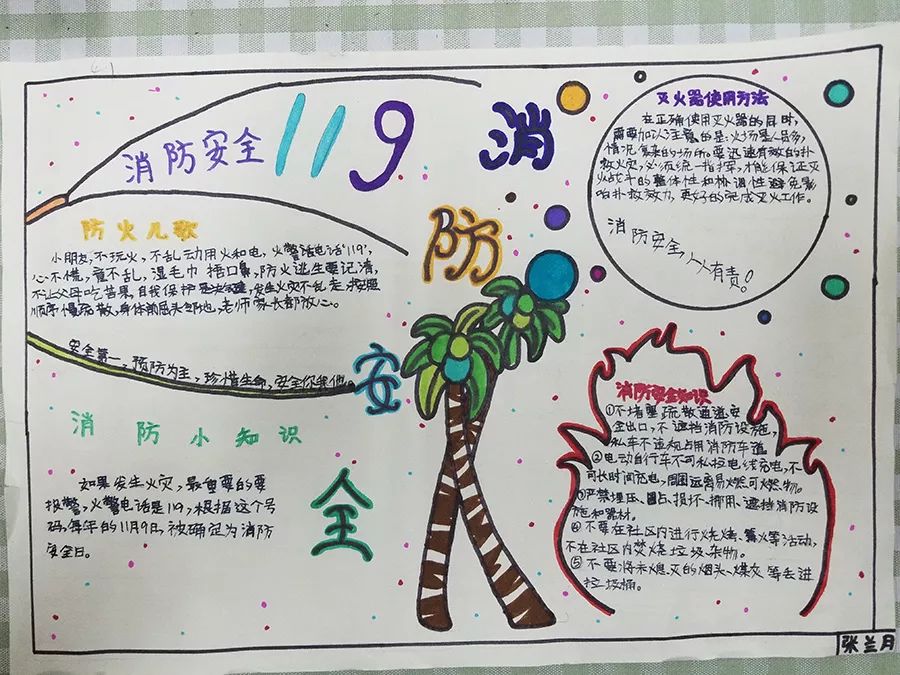 消防安全119
消
防
安
全
防火儿歌
小朋友,不玩火,不乱动用火和电,火警电话"119",
心不慌,意不乱,湿毛巾捂口鼻,防火逃生要记清,
不让父母吃苦果,自我保护是决键,发生火灾不乱走,按照
顺序慢疏散,身体前屈头部地,老师家长都放心。
安全第一,预防为主,珍惜生命,安全你我他。
消防小知识
如果发生火灾,最重要的要
报警,火警电话是119,根据这个号
码,每年的11月9日,被确定为消防
安全日。
灭火器使用方法
在正确使用灭火器的同时,
需要加以注意的是:火场是人员多,
情况复杂的场所。要迅速有效的扑
救火灾,必须统一指挥,才能保证灭
火战斗的整体性和协调性避免影
响扑救效力,更好的完成灭火工作。
消防安全,人人有责!
消防安全知识
①不堵塞疏散通道、安
全出口,不遮挡消防设施,
私车不违规占用消防车道
②电动自行车不可私拉电线充电,不
可长时间充电,周围远离易燃可燃物。
③严禁埋压、圈占、损坏、挪用、遮挡消防设
施和器材。
④不要在社区内进行烧烤、篝火等活动,
不在社区内焚烧垃圾、杂物。
⑤不要将未熄灭的烟头、煤灰等丢进
垃圾桶。
张兰月